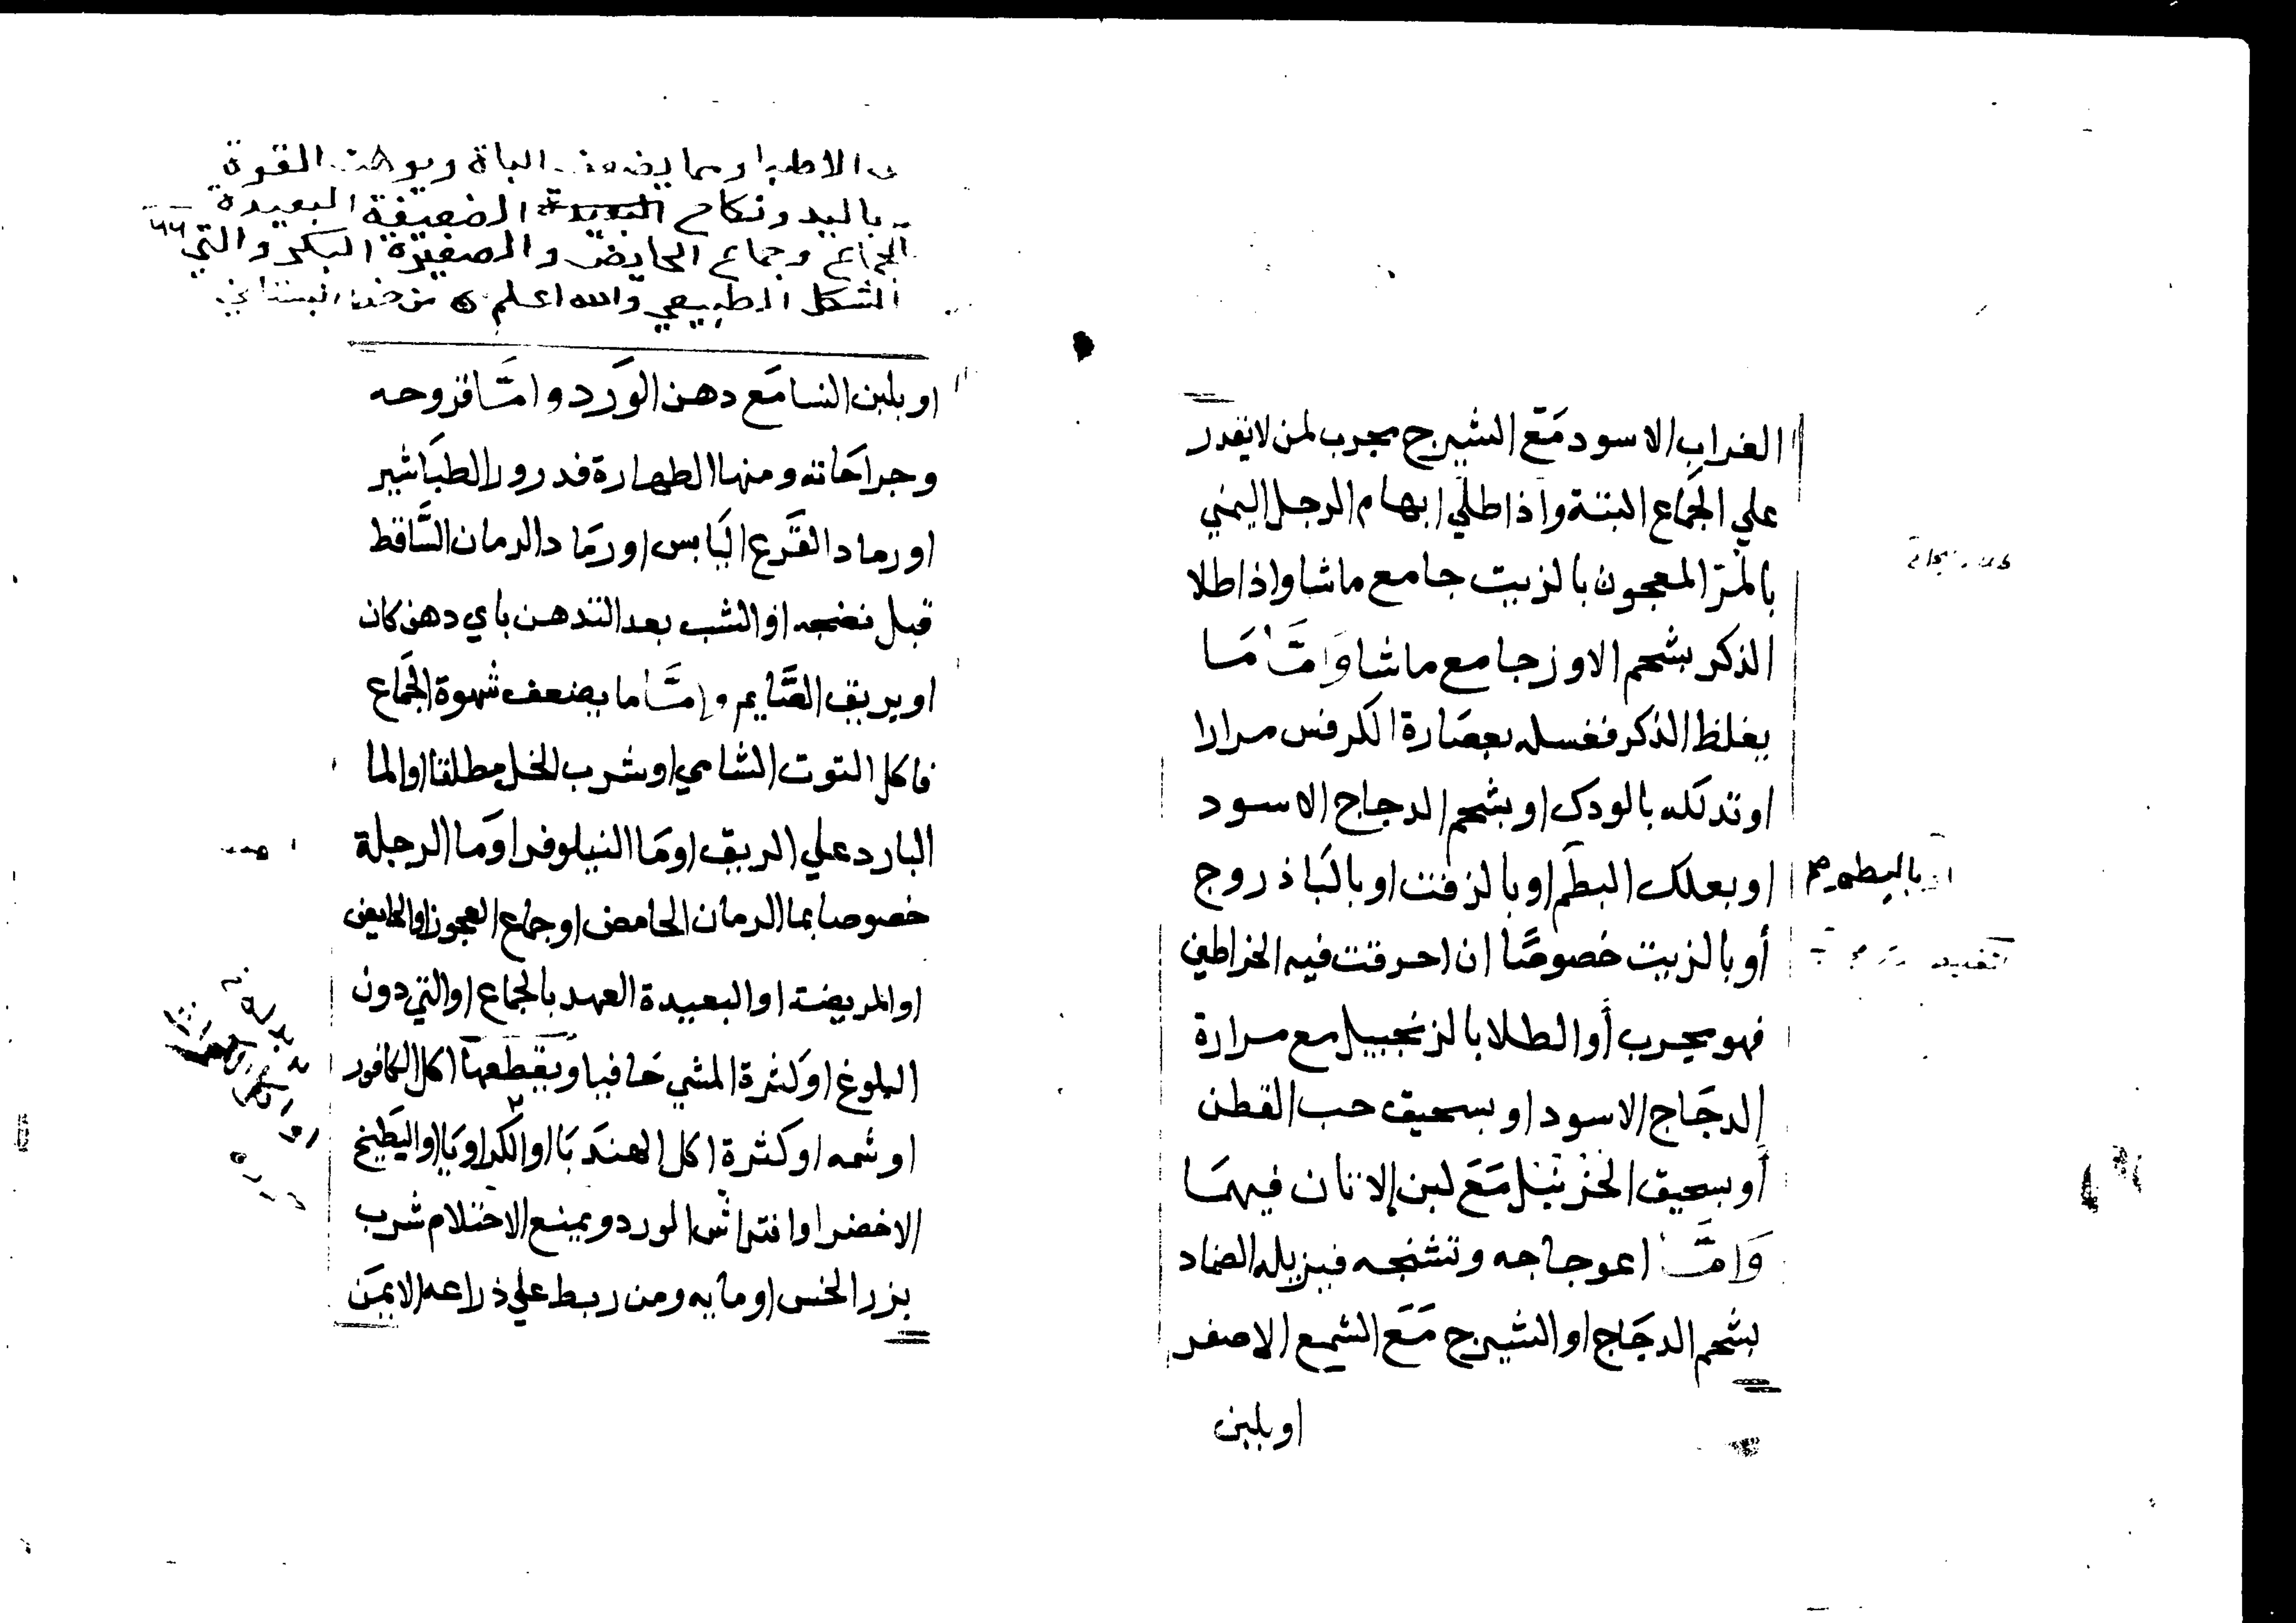 الغراب الاسود مَعَ الشيرج مجرب لمن لا يقدر
علي الجَماع البتة واذا طلي ابهام الرجل اليمني
بالمُرّ المعجون بالزيت جامع ما شا واذا طلا
الذكر بشحم الاوز جامع ما شا وَامَّا مَا
يغلظ الذكر فغسله بعصَارة الكرفس مرارا
او تدلكه بالودك او بشحم الدجاج الاسود
او بعلك البطم او بالزفت او بالبَاذروج
أو بالزيت خصوصًا ان احرقت فيه الخراطين
فهو مجرب أو الطلا بالزنجبيل مع مرارة
الدجَاج الاسود او بسحيق حب القطن
أو بسحيق الخَرْنَبَل مَعَ لبن الاتان فيهمَا
وَامَّا اعوجاجه وتشنجه فيزيله الضماد
بشحم الدجَاج او الشيرج مَعَ الشمع الاصفر
او بلبن
بالبطم صح
الاطبا ومما يضعف الباة ويوهن القوة
باليد ونكاح الضعيفة البعيدة
الجماع وجماع الحايض والصغيرة البكر والتي
الشكل الطبيعي والله اعلم
٦٦
او بلبن النسا مَع دهن الوَرد وامَّا قروحه
وجراحَاته ومنها الطهارة فدرور الطبَاشير
او رماد القَرع اليَابس او رمَاد الرمان السَّاقط
قبل نضجه او الشب بعد التدهن باي دهن كان
او بريق الصَّايم وامَّا ما يضعف شهوة الجَماع
فاكل التوت الشامي او شرب الخل مطلقا او الما
البارد علي الريق او مَا النيلوفر او مَا الرجلة
خصوصا بما الرمان الحامض او جماع العجوز او الحايض
او المريضة او البعيدة العهد بالجماع او التي دون
البلوغ او كثرة المشي حَافيا ويقطعها اكل الكافور
او شمه او كثرة اكل الهندَبَا او الكراويَا او البَطيخ
الاخضر او افتراش الورد ويمنع الاحتلام شرب
بزر الخس او مايه ومن ربط علي ذراعه الايمَن